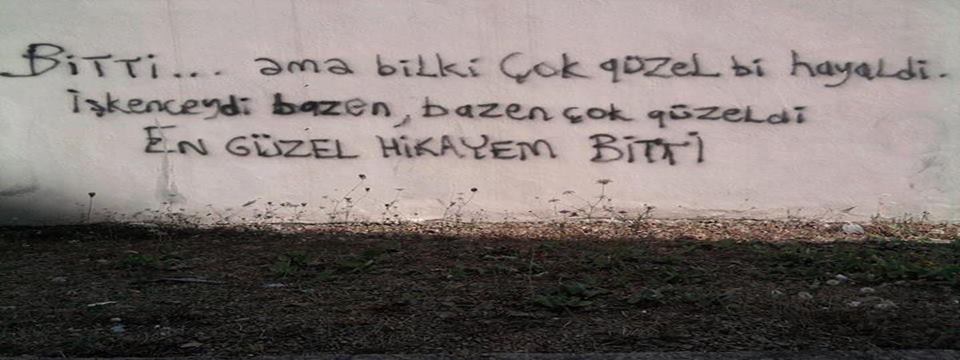 BiTTi... ama biLki Çok güzeL bi hayaLdi.
işkenceydi bazen, bazen çok güzeLdi
EN GÜZEL HİKAYEM BİTTİ